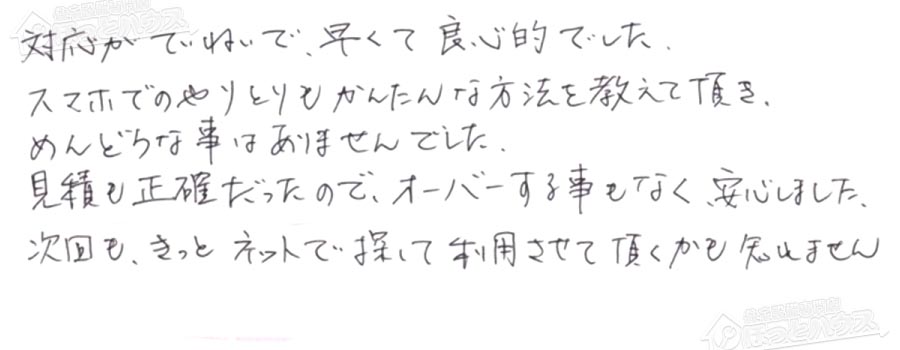 対応がていねいで、早くて良心的でした.
スマホでのやりとりもかんたんな方法を教えて頂き、
めんどうな事はありませんでした.
見積も正確だったので、オーバーする事もなく、安心しました、
次回も、きっとネットで探して利用させて頂くかも知れません
ほっとハウス
ほっとハウス